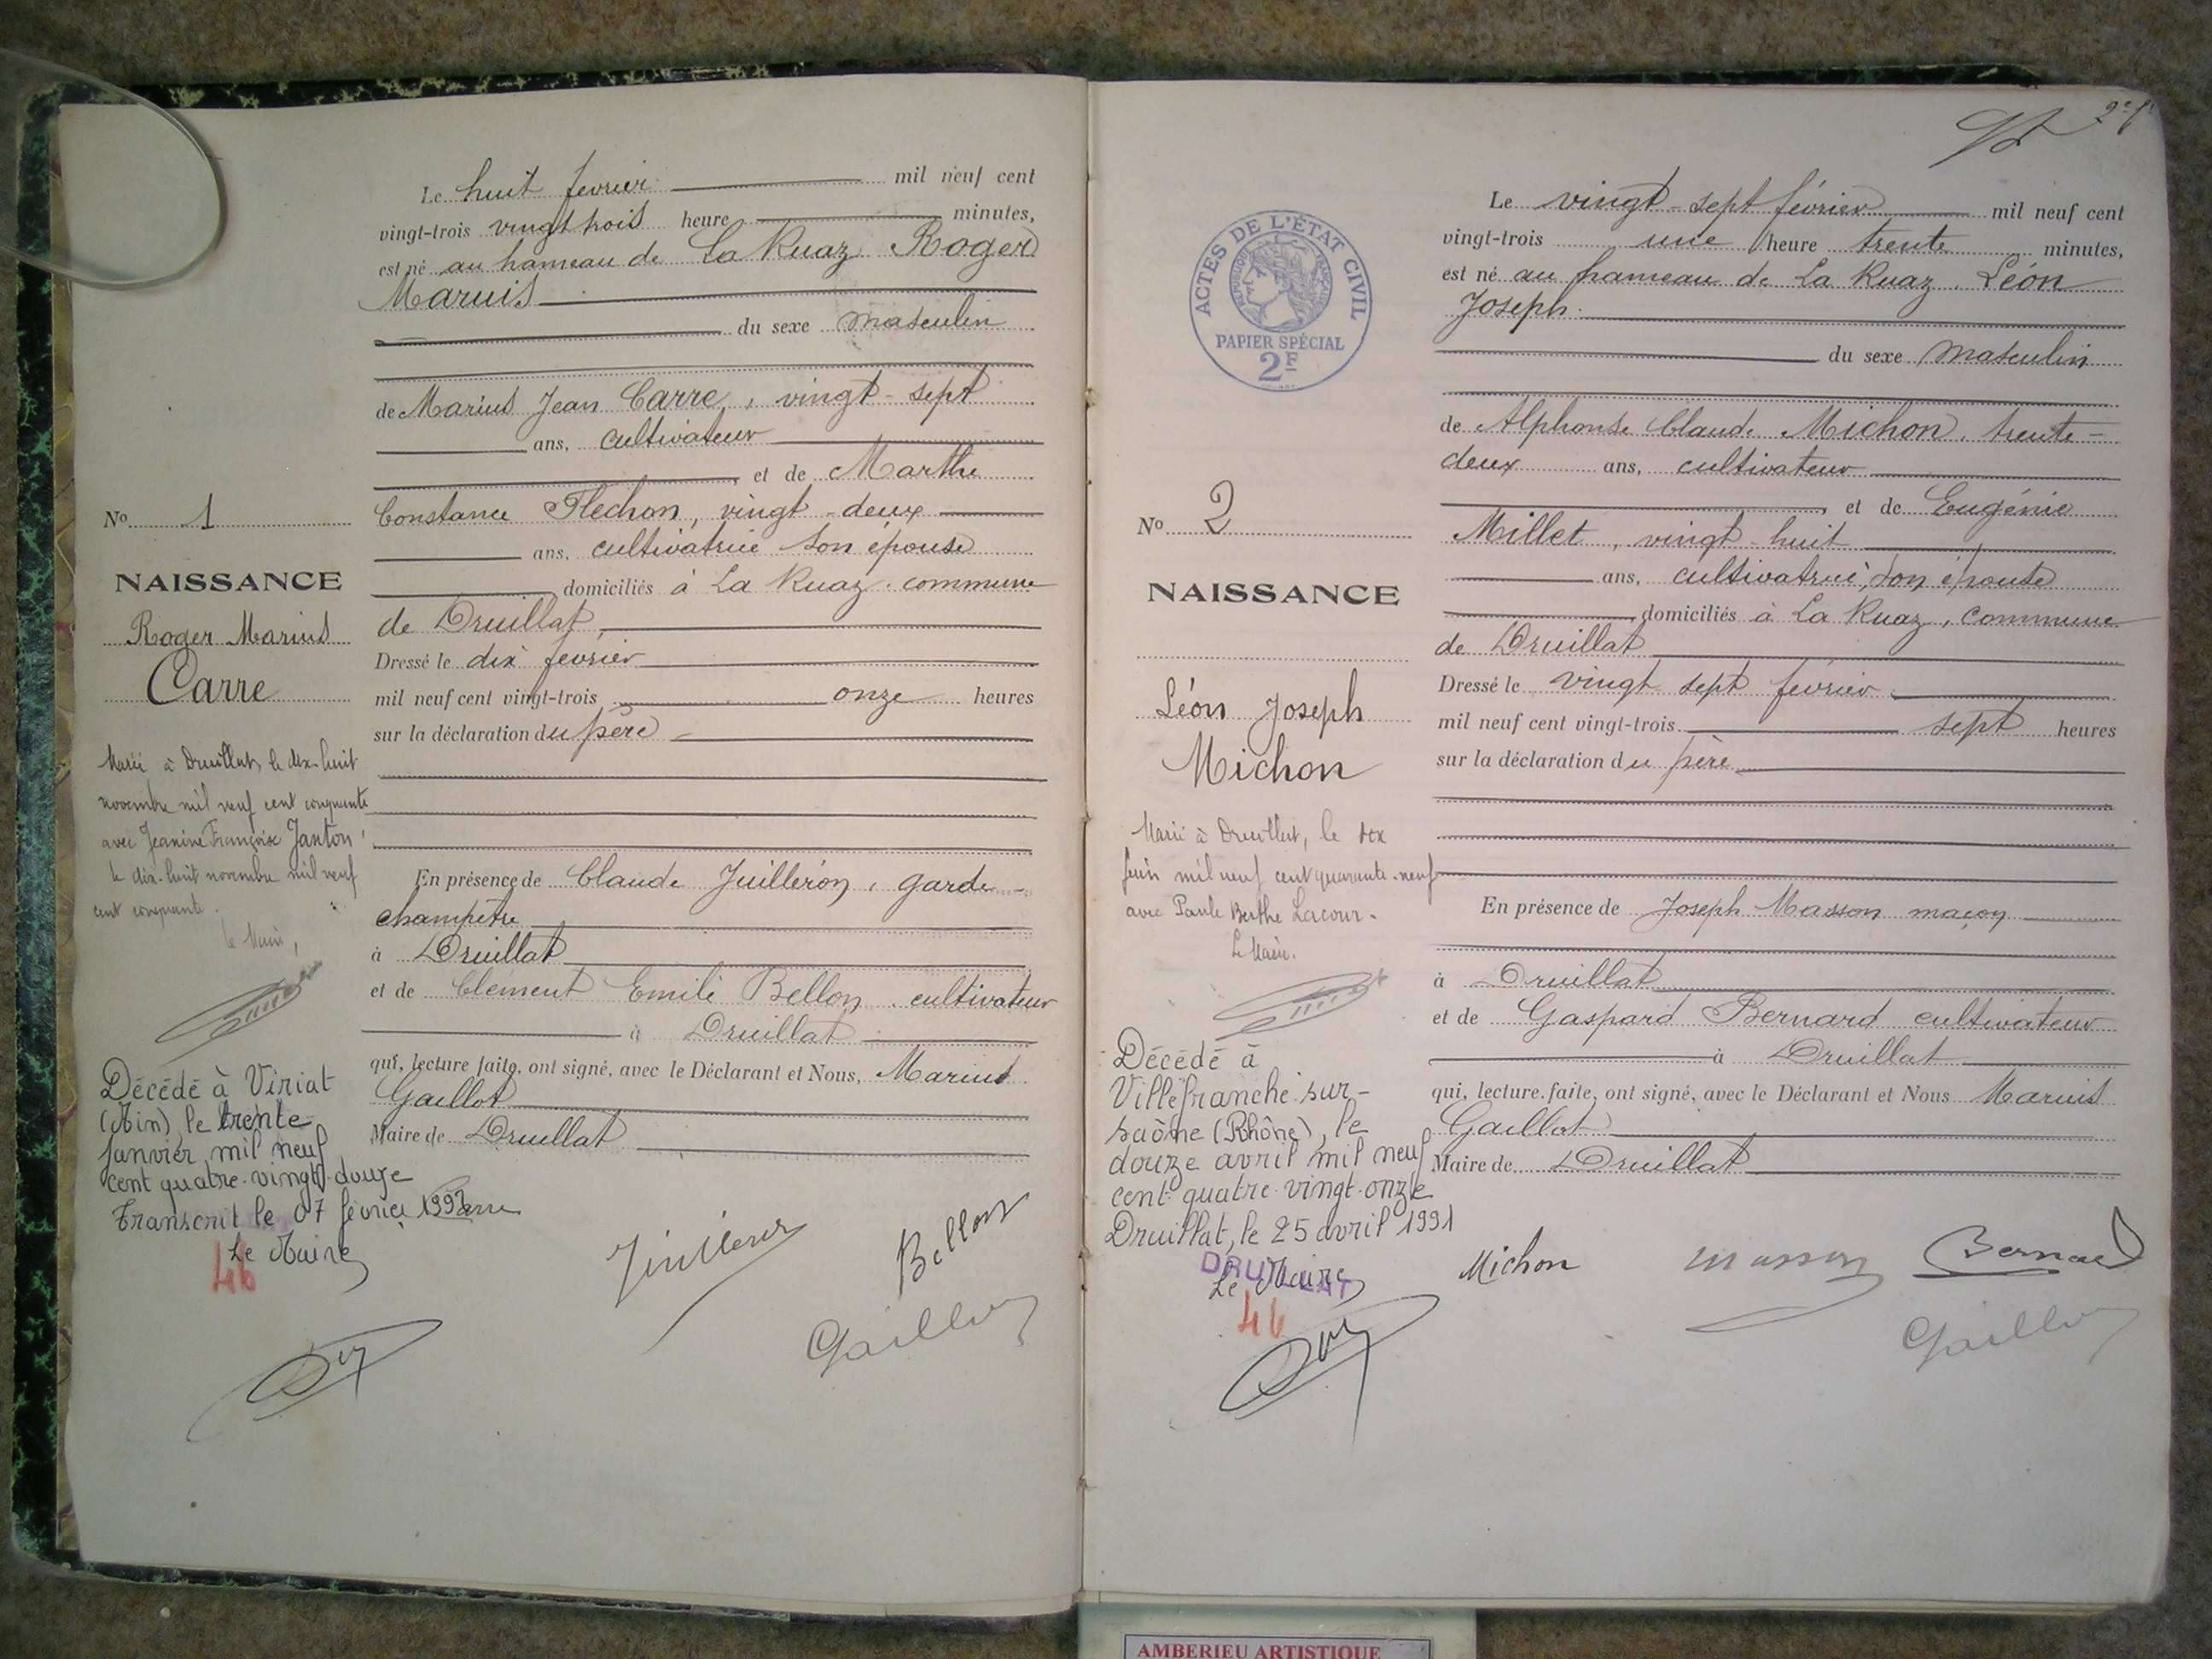 Le huit fevrier mil neuf cent
vingt-trois vingt trois heure minutes,
est né au hameau de La Ruaz Roger
Marius
du sexe masculin
de Marius Jean Carre, vingt-sept
ans, cultivateur
, et de Marthe
Constance Fléchon, vingt-deux
ans, cultivatrice son épouse
domiciliés à La Ruaz. commune
de Druillat,
Dressé le dix fevrier
mil neuf cent vingt-trois onze heures
sur la déclaration du père
En présence de Claude Juilleron, garde-
champêtre
à Druillat
et de Clément Emile Bellon. cultivateur
à Druillat
qui, lecture faite, ont signé, avec le Déclarant et Nous, Marius
Gaillot
Maire de Druillat
Carre
Juilleron
Bellon
Gaillot
No 1
NAISSANCE
Roger Marius
Carre
Marié à Druillat, le dix-huit
novembre mil neuf cent cinquante
avec Jeanine Françoise Janton
le dix-huit novembre mil neuf
cent cinquante.
le Maire,
Décédé à Viriat
(Ain) le trente
janvier mil neuf
cent quatre-vingt-douze
Transcrit le 07 février 1992
Le Maire
46
Le vingt-sept février mil neuf cent
vingt-trois une heure trente minutes,
est né au hameau de La Ruaz. Léon
Joseph.
du sexe masculin
de Alphonse Claude Michon, trente-
deux ans, cultivateur
, et de Eugénie
Millet, vingt-huit
ans, cultivatrice, son épouse
domiciliés à La Ruaz, commune
de Druillat
Dressé le vingt sept février
mil neuf cent vingt-trois sept heures
sur la déclaration du père
En présence de Joseph Masson maçon
à Druillat
et de Gaspard Bernard cultivateur
à Druillat
qui, lecture faite, ont signé, avec le Déclarant et Nous Marius
Gaillot
Maire de Druillat
Michon
Masson
Bernard
Gaillot
ACTES DE L'ÉTAT CIVIL
RÉPUBLIQUE FRANÇAISE
PAPIER SPÉCIAL
2F
No 2
NAISSANCE
Léon Joseph
Michon
Marié à Druillat, le dix
juin mil neuf cent quarante-neuf
avec Paule Berthe Lacour.
Le Maire.
Décédé à
Villefranche-sur-
saône (Rhône), le
douze avril mil neuf
cent quatre-vingt-onze
Druillat, le 25 avril 1991
DRUILLAT
Le Maire
46
AMBERIEU ARTISTIQUE